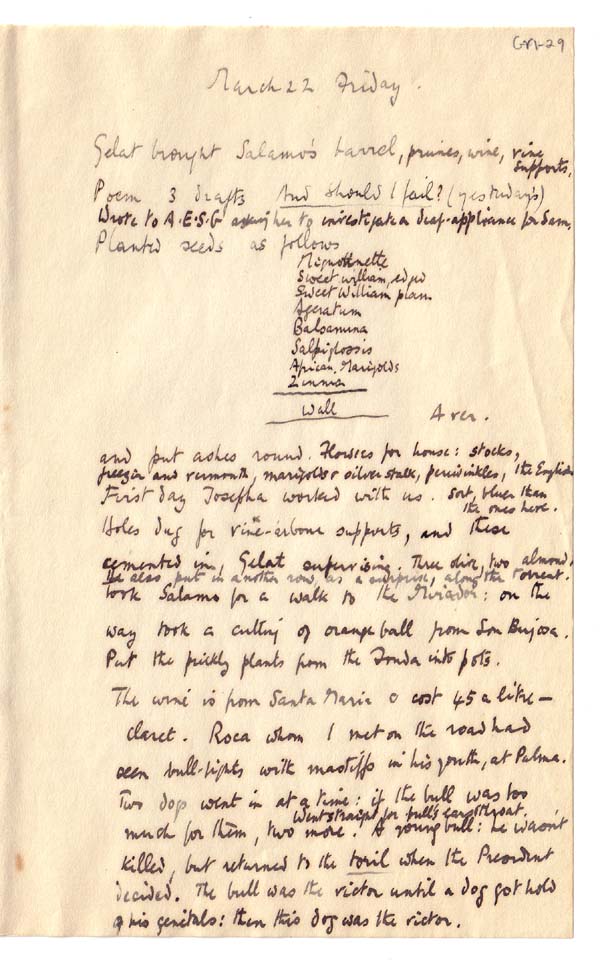 GM-29
March 22 Friday.
Gelat brought Salamo's barrel, prunes, wine, vine
supports.
Poem 3 drafts And should I fail? (yesterday's)
Wrote to A.E.S.G asking her to investigate a deaf-appliance for Sam.
Planted seeds as follows
Mignonette
Sweet william, edged
Sweet William plain
Ageratum
Balsamina
Salpiglossis
African Marigolds
Zinnia
Wall
4 ver.
and put ashes round. Flowers for house: stocks,
freezia and vermouth, marigolds & silver stalk, periwinkles, the English
First day Josepha worked with us. sort, bluer than
the ones here.
Holes dug for vine-arbour supports, and these
cemented in, Gelat supervising. Three olive, two almond.
He also put in another row, as a surprise, along the torrent.
took Salamo for a walk to the Mirador: on the
way took a cutting of orange ball from Son Bujosa.
Put the prickly plants from the Fonda into pots.
The wine is from Santa Maria & cost 45 a litre —
claret. Roca whom I met on the road had
seen bull-fights with mastiffs in his youth, at Palma.
Two dogs went in at a time: if the bull was too
went straight for bull's ears & throat.
much for them, two more. A young bull: he wasn't
killed, but returned to the toril when the President
decided. The bull was the victor until a dog got hold
of his genitals: then this dog was the victor.